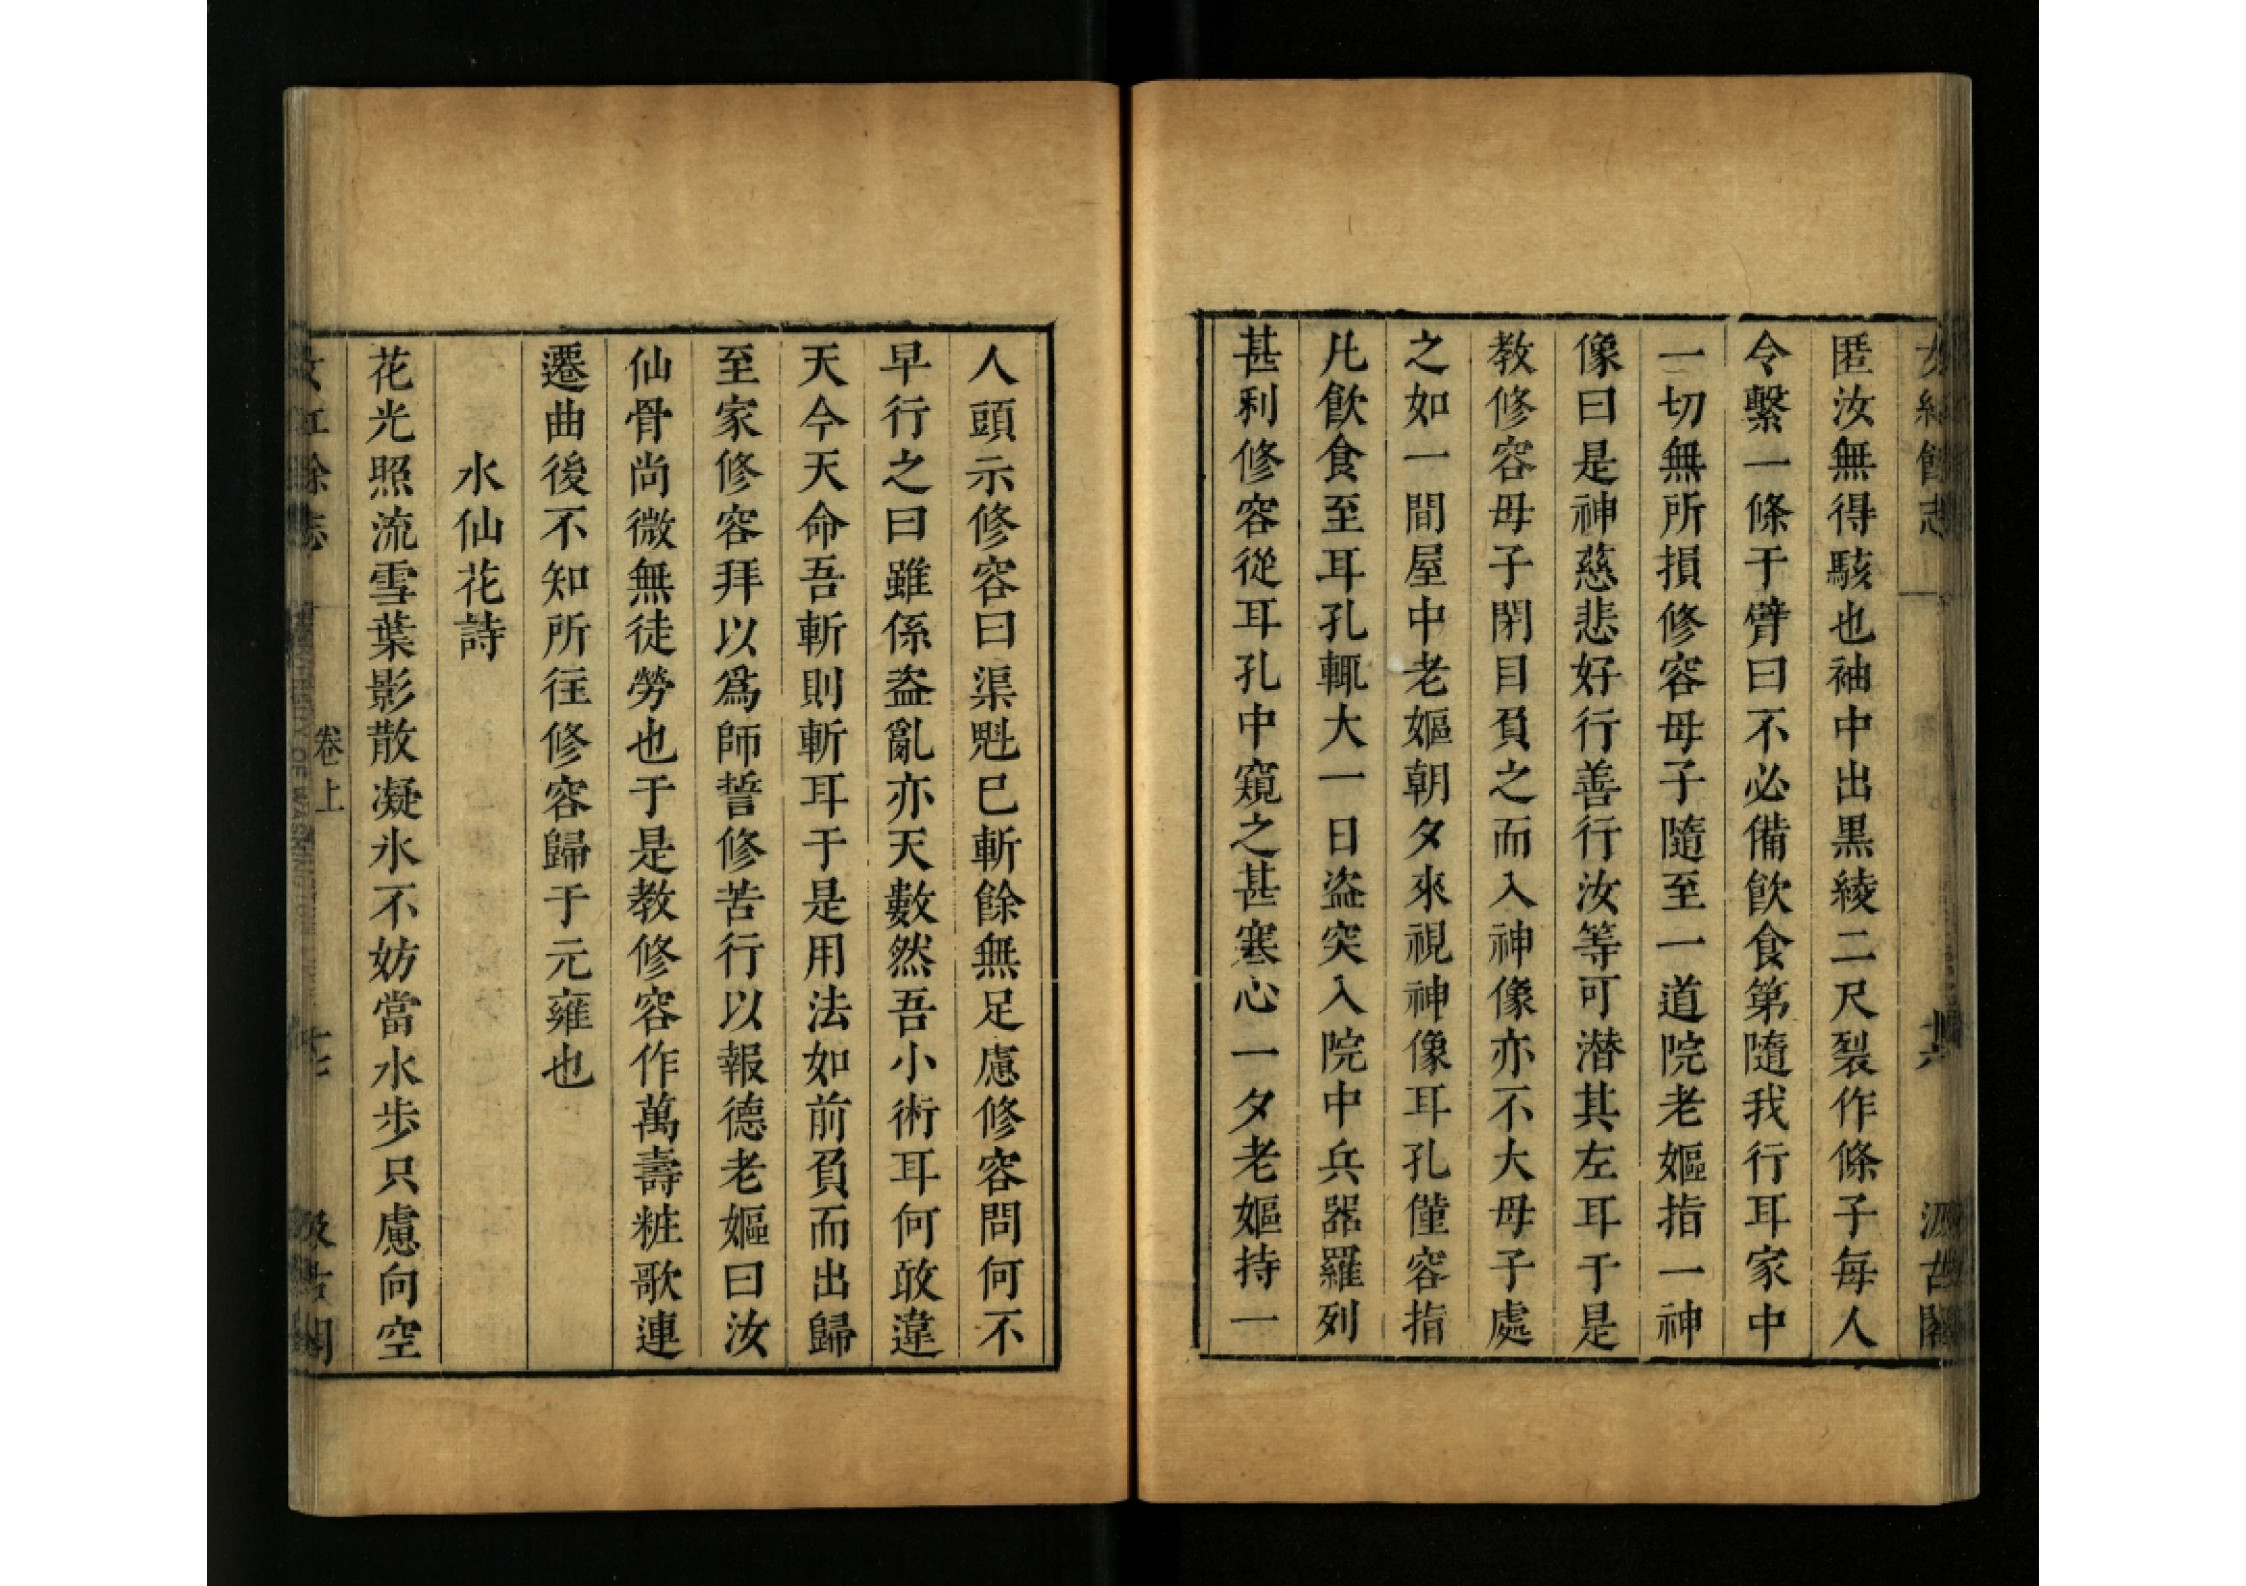 匿汝無得駭也袖中出黒綾二尺裂作條子每人
令繫一條于臂曰不必備飲食第隨我行耳家中
一切無所損修容母子隨至一道院老嫗指一神
像曰是神慈悲好行善行汝等可潜其左耳于是
教修容母子閉目負之而入神像亦不大母子處
之如一間屋中老嫗朝夕來視神像耳孔僅容指
凡飲食至耳孔輒大一日盜突入院中兵器羅列
甚利修容從耳孔中窺之甚寒心一夕老嫗持一
人頭示修容曰渠魁巳斬餘無足慮修容問何不
早行之曰雖係盗亂亦天數然吾小術耳何敢違
天今天命吾斬則斬耳于是用法如前負而出歸
至家修容拜以爲師誓修苦行以報德老嫗曰汝
仙骨尚微無徒勞也于是教修容作萬壽粧歌連
遷曲後不知所徃修容歸于元雍也
水仙花詩
花光照流雪葉影散凝氷不妨當水步只慮向空
餘志
卷上
十七